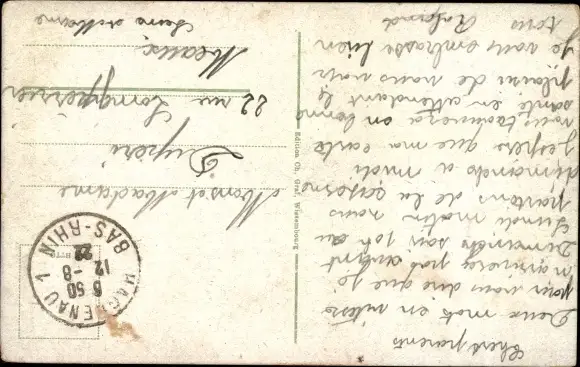 Chers parents
Deux mots en vitesse
pour vous dire que je
n'arriverai pas avant
Dimanche soir ou
Lundi matin nous
partons de la caserne
dimanche a midi
J'espère que ma carte
vous trouvera en bonne
santé en attendant le
plaisir de vous voir
Je vous embrasse bien
tous
Edition Ch. Graf, Wissembourg
HAGUENAU 1
6 50
12-8
22
BAS-RHIN
Monsr et Madame
Dupers
22 rue Longpérier
Meaux
Seine et Marne